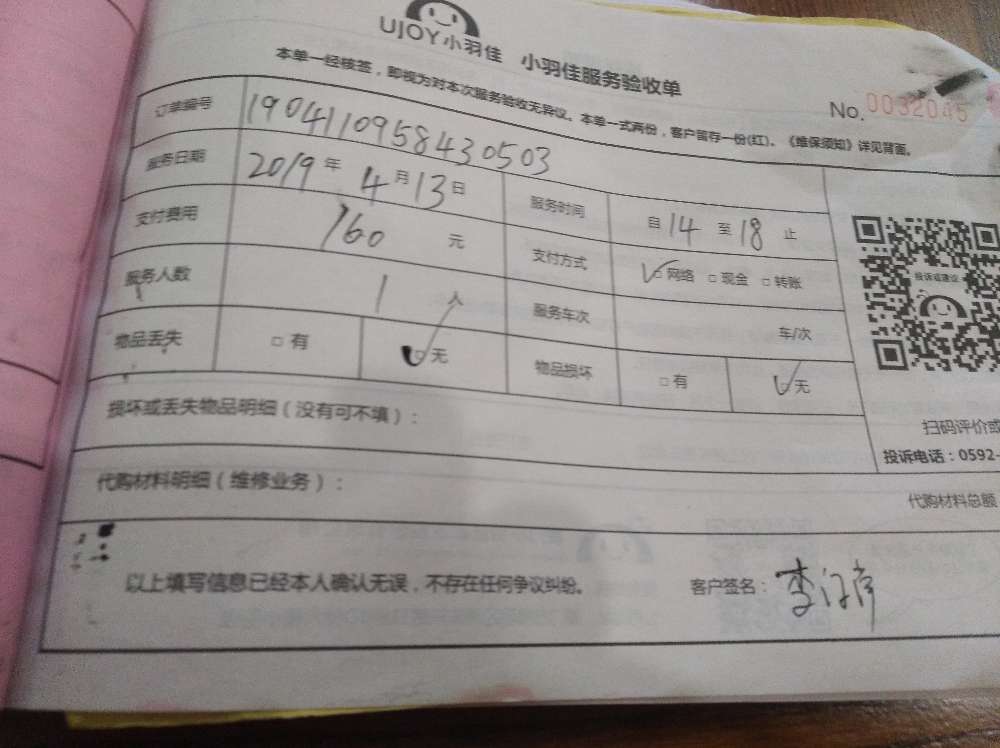 UJOY小羽佳 小羽佳服务验收单
No.0032045
本单一经核签，即视为对本次服务验收无异议。本单一式两份，客户留存一份(红)。《维保须知》详见背面。
订单编号 1904110958430503
服务日期 2019年4月13日 服务时间 自14至18止
支付费用 160元 支付方式 ☑网络 □现金 □转账
服务人数 1人 服务车次 车/次
物品丢失 □有 ☑无 物品损坏 □有 ☑无
投诉或建议
扫码评价或
投诉电话：0592-
损坏或丢失物品明细（没有可不填）：
代购材料明细（维修业务）： 代购材料总额
以上填写信息已经本人确认无误，不存在任何争议纠纷。 客户签名：李